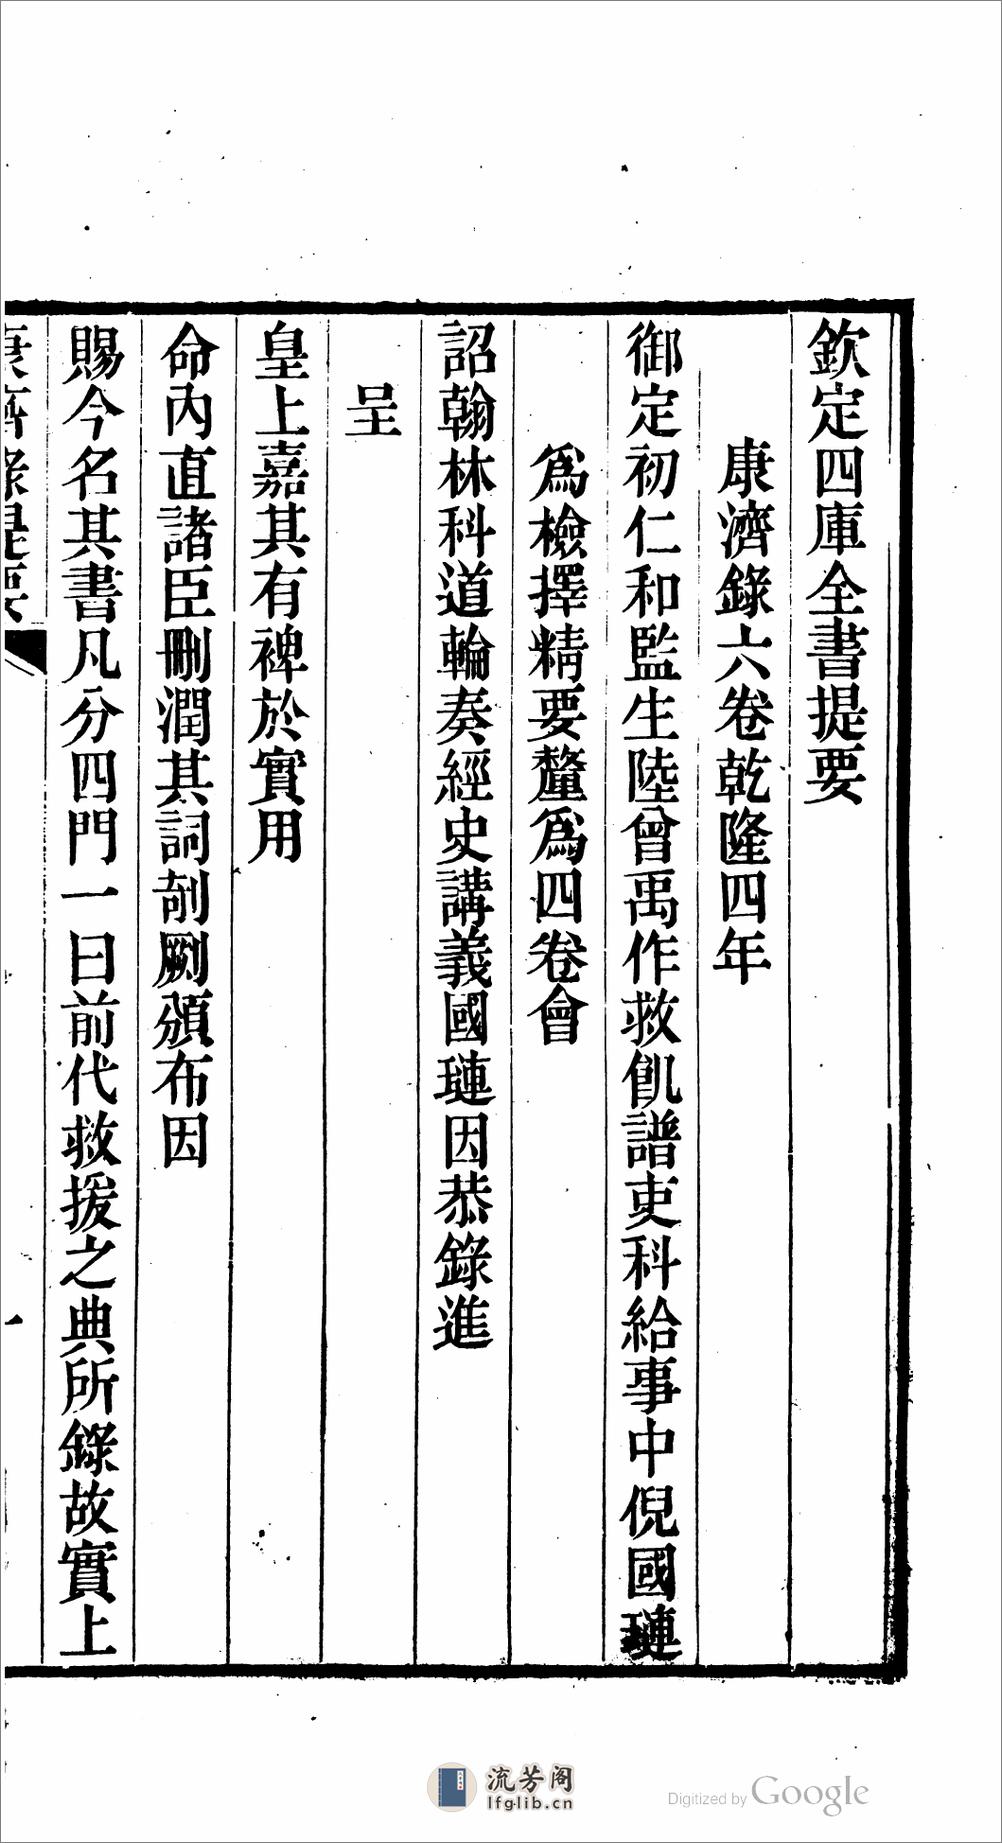 欽定四庫全書提要
康濟錄六卷乾隆四年
御定初仁和監生陸曾禹作救飢譜吏科給事中倪國璉
為檢擇精要釐為四卷會
詔翰林科道輪奏經史講義國璉因恭錄進
呈
皇上嘉其有裨於實用
命內直諸臣刪潤其詞剞劂頒布因
賜今名其書凡分四門一曰前代救援之典所錄故實上
康濟錄提要
一
流芳阁
lfglib.cn
Digitized by Google